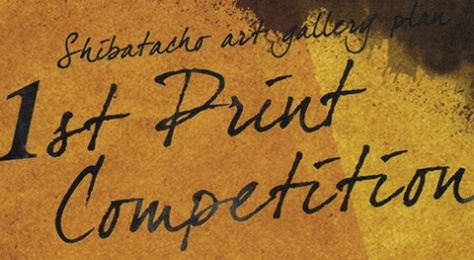 Shibatacho art gallery plan
1st Print
Competition